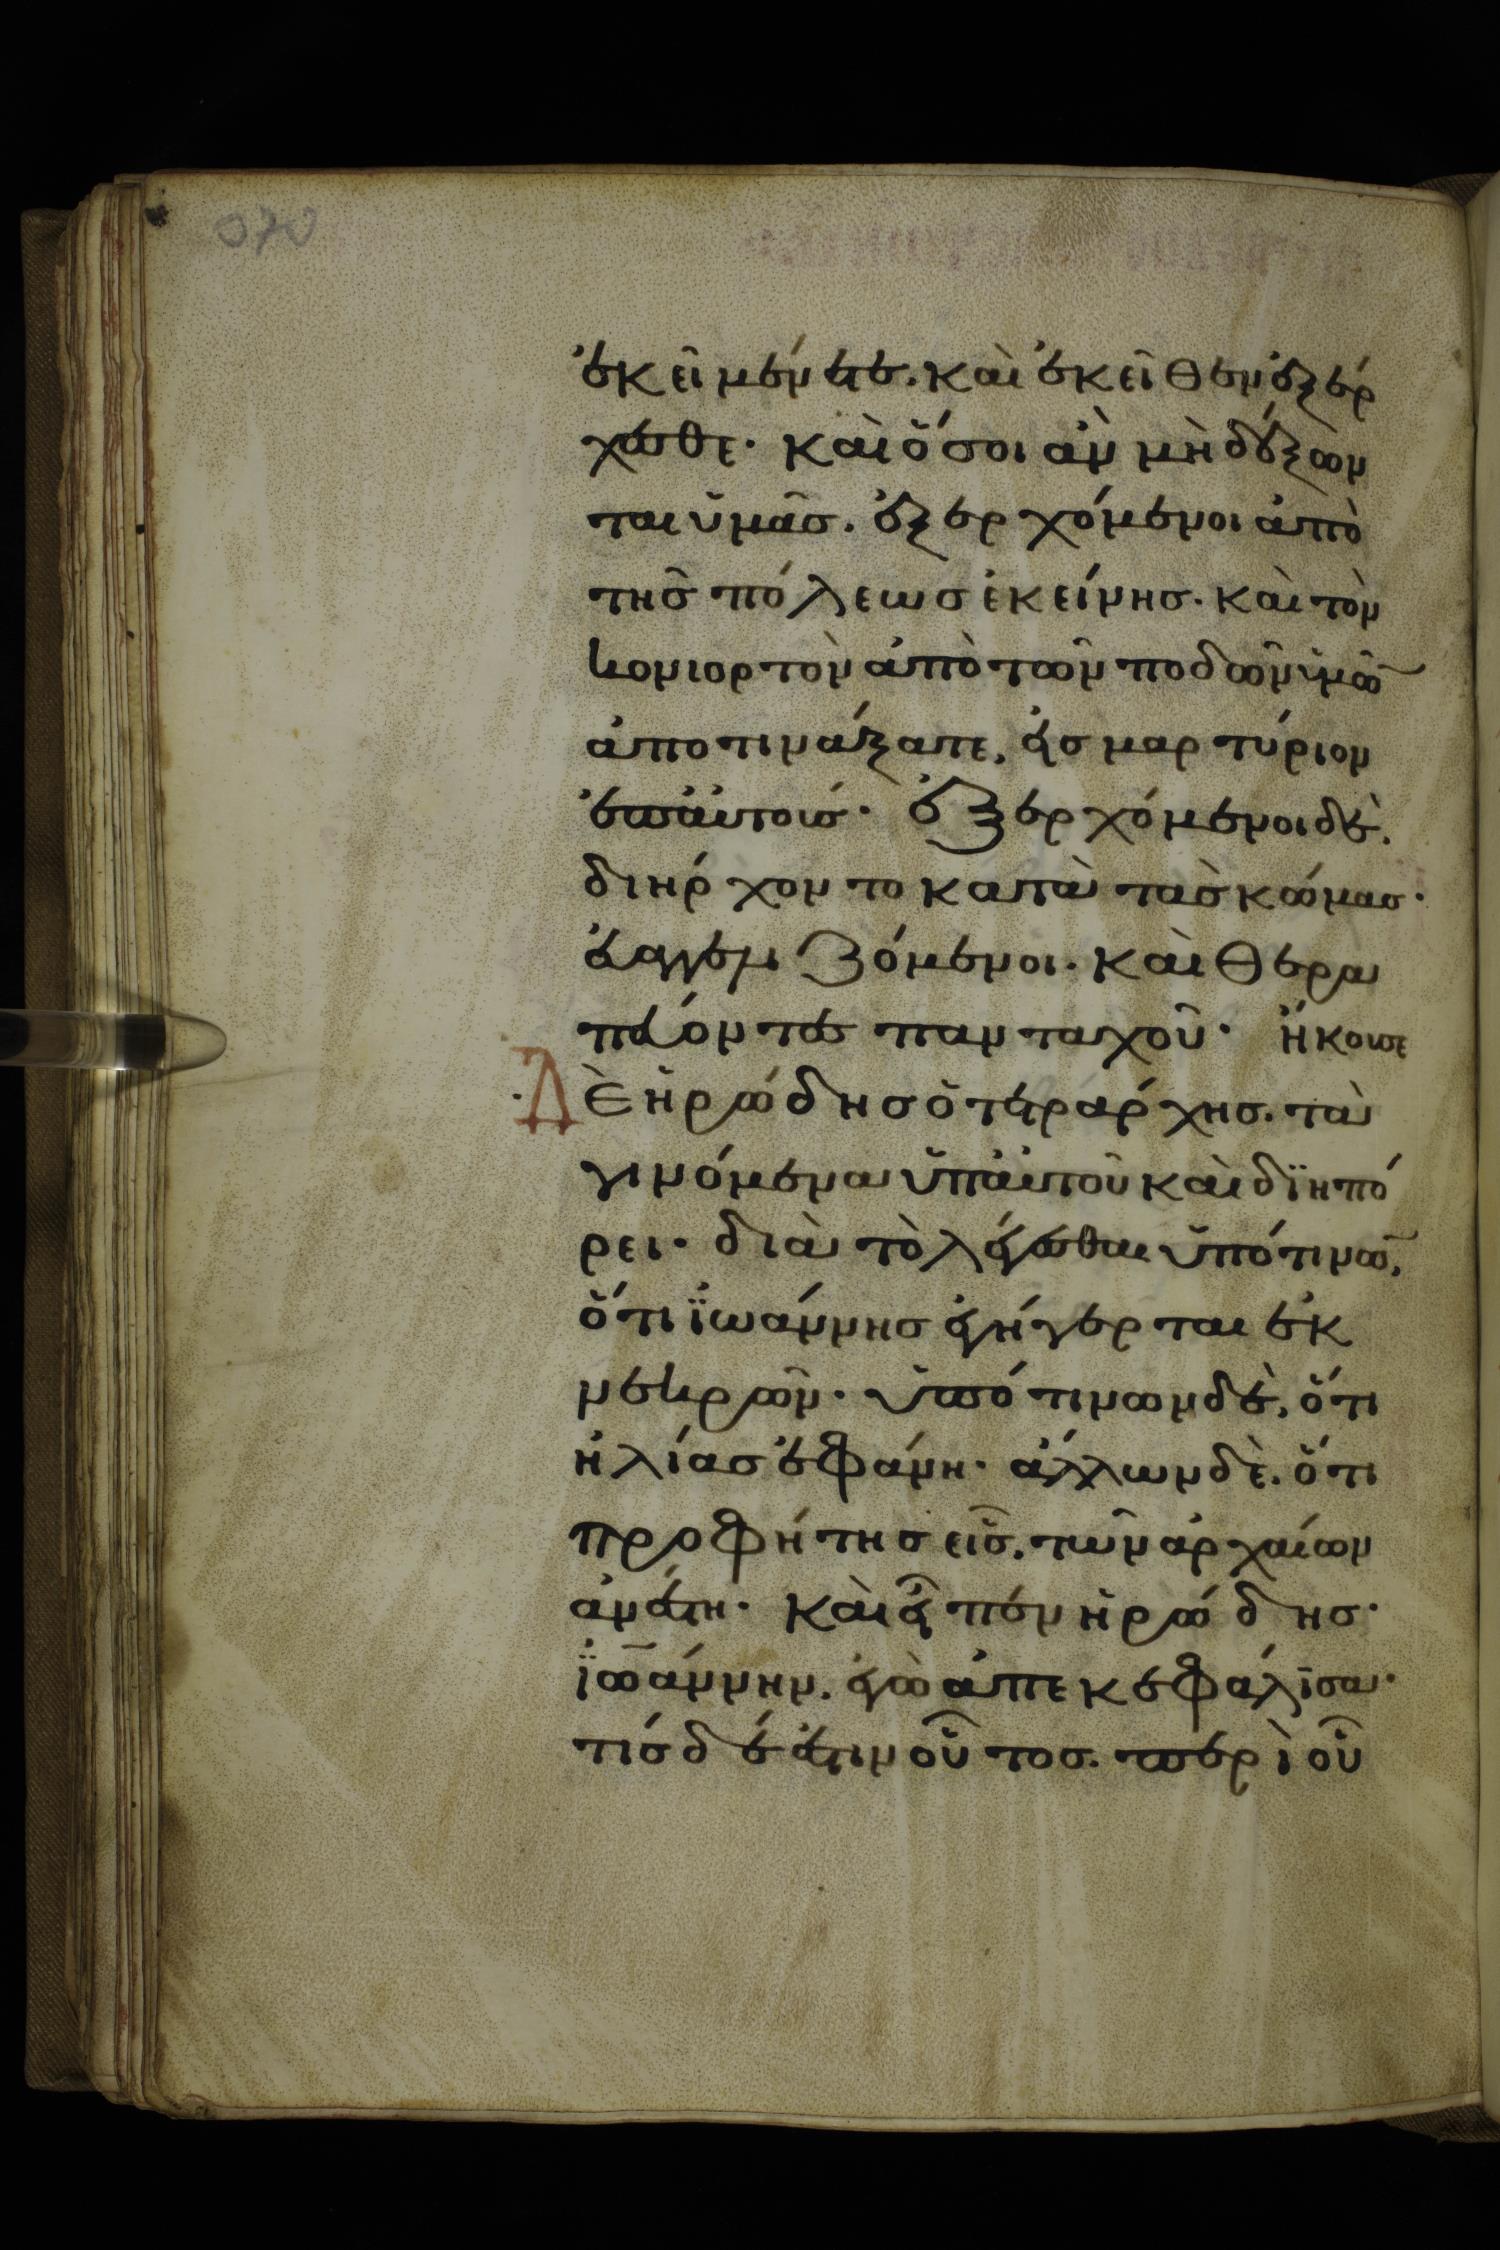 070
ἐκεῖ μένετε. καὶ ἐκεῖθεν ἐξέρ
χεσθε· καὶ ὅσοι ἀν μὴ δέξων
ται ὑμᾶσ. ἐξερχόμενοι ἀπὸ
τῆσ πόλεωσ ἐκείνησ. καὶ τὸν
κονιορτὸν ἀπὸ τῶν ποδῶν ὑμῶ
ἀποτινάξατε, εἰσ μαρτύριον
ἐπ ἀυτούσ· ἐξερχόμενοι δὲ.
διήρχοντο κατὰ τὰσ κώμασ·
ἐυαγγελιζόμενοι. καὶ θερα
πεύοντεσ πανταχοῦ· ἤκουσε
Δὲ ἡρώδησ ὁ τετράρχησ. τὰ
γινόμενα ὑπ ἀυτοῦ καὶ διηπό
ρει· διὰ τὸ λέγεσθαι ὑπό τινῶ,
ὅτι ἰωάννησ ἐγήγερται ἐκ
νεκρῶν· ὑπό τινων δὲ, ὅτι
ἠλίασ ἐφάνη· ἄλλων δὲ. ὅτι
προφήτησ εἷσ. τῶν ἀρχαίων
ἀνέστη· καὶ εἶπεν ἡρώδησ·
ἰωάννην. ἐγὼ ἀπεκεφάλισα·
τίσ δέ ἐστιν οὗτοσ. περὶ οὗ